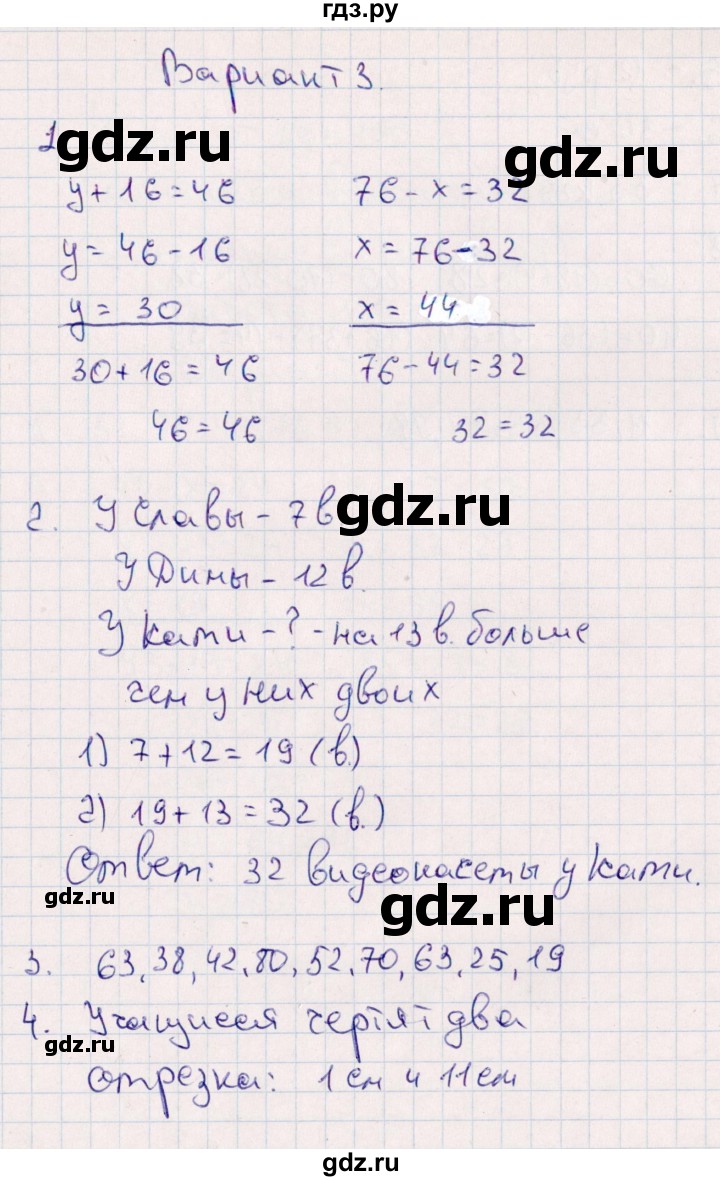 гдз.ру
Вариант 3.
1
gdz.ru
gdz.ru
у + 16 = 46 76 - х = 32
у = 46 - 16 х = 76 - 32
у = 30 х = 44
30 + 16 = 46 76 - 44 = 32
46 = 46 32 = 32
2. У Славы - 7 в
gdz.ru
У Дины - 12 в.
У Кати - ? - на 13 в. больше
чем у них двоих
1) 7 + 12 = 19 (в.)
2) 19 + 13 = 32 (в.)
Ответ: 32 видеокасеты у Кати.
gdz.ru
gdz.ru
3. 63, 38, 42, 80, 52, 70, 63, 25, 19
4. Учащиеся чертят два
gdz.ru
отрезка: 1 см и 11 см
gdz.ru